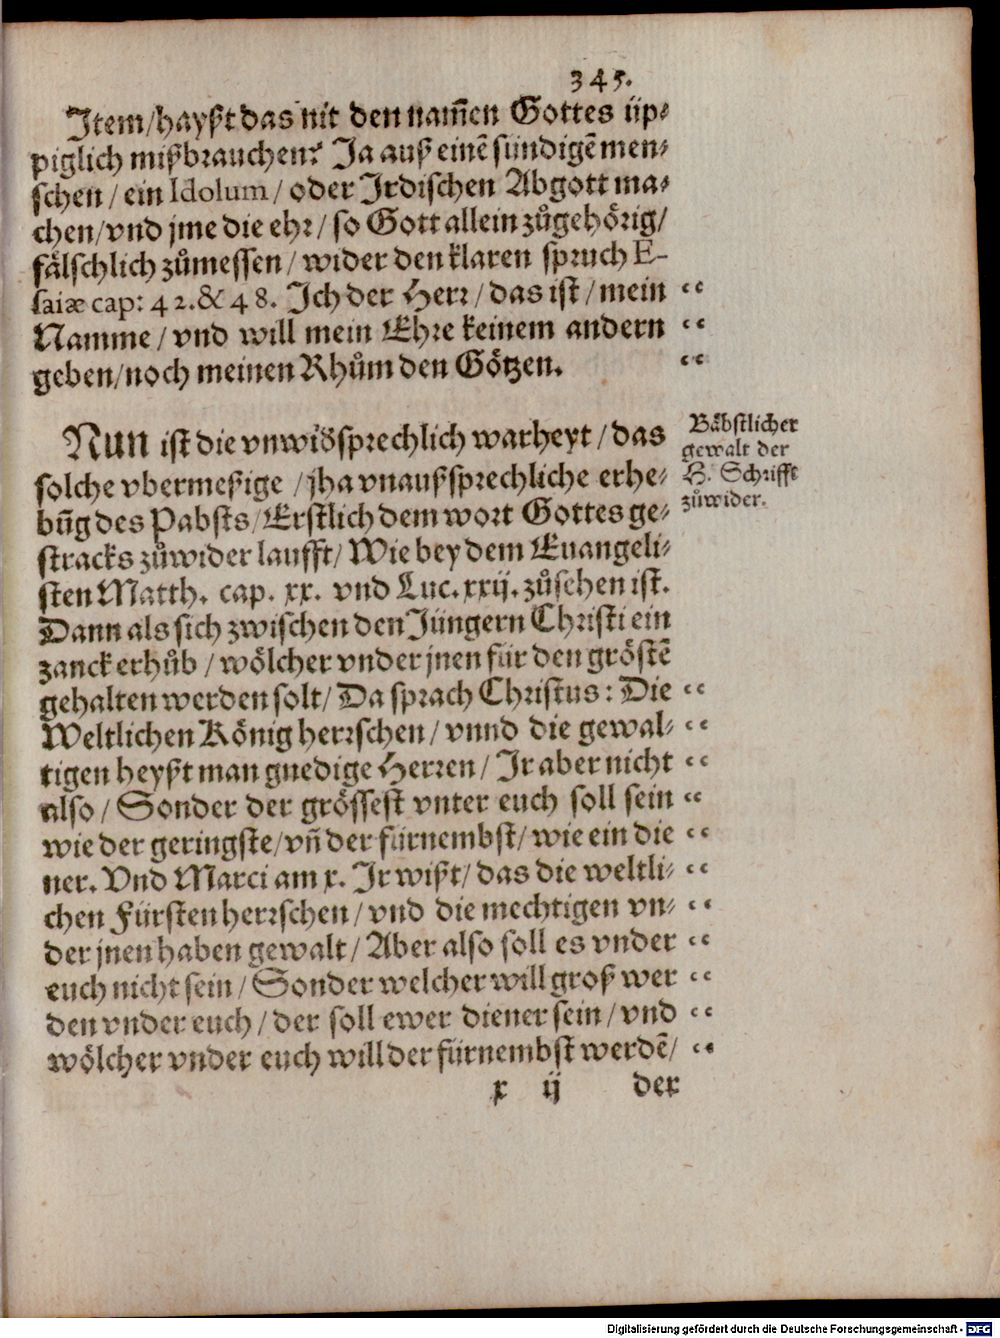 345.
Item/hayßt das nit den nam̃en Gottes üp⸗
piglich mißbrauchen? Ja auß einẽ sündigẽ men⸗
schen / ein Idolum / oder Irdischen Abgott ma⸗
chen/vnd jme die ehr / so Gott allein zůgehörig/
fälschlich zůmessen / wider den klaren spruch E-
saiæ cap: 42. & 48. Ich der Herr / das ist / mein “
Namme / vnd will mein Ehre keinem andern “
geben/noch meinen Rhům den Götzen. “
Nun ist die vnwidsprechlich warheyt / das
solche vbermeßige / jha vnaußsprechliche erhe⸗
bũg des Pabsts/Erstlich dem wort Gottes ge⸗
stracks zůwider laufft/ Wie bey dem Euangeli⸗
sten Matth. cap. xx. vnd Luc. xxij. zůsehen ist.
Dann als sich zwischen den Jüngern Christi ein
zanck erhůb / wölcher vnder jnen für den gröstẽ
gehalten werden solt/ Da sprach Christus: Die “
Weltlichen König herrschen / vnnd die gewal⸗ “
tigen heyßt man gnedige Herren / Ir aber nicht “
also / Sonder der grössest vnter euch soll sein “
wie der geringste/vñ der fürnembst/wie ein die “
ner. Vnd Marci am x. Ir wißt/das die weltli⸗ “
chen Fürsten herrschen / vnd die mechtigen vn⸗ “
der jnen haben gewalt / Aber also soll es vnder “
euch nicht sein / Sonder welcher will groß wer “
den vnder euch / der soll ewer diener sein / vnd “
wölcher vnder euch will der fürnembst werdẽ/ “
x ij der
Bäbstlicher
gewalt der
H. Schrifft
zůwider.
Digitalisierung gefördert durch die Deutsche Forschungsgemeinschaft - DFG